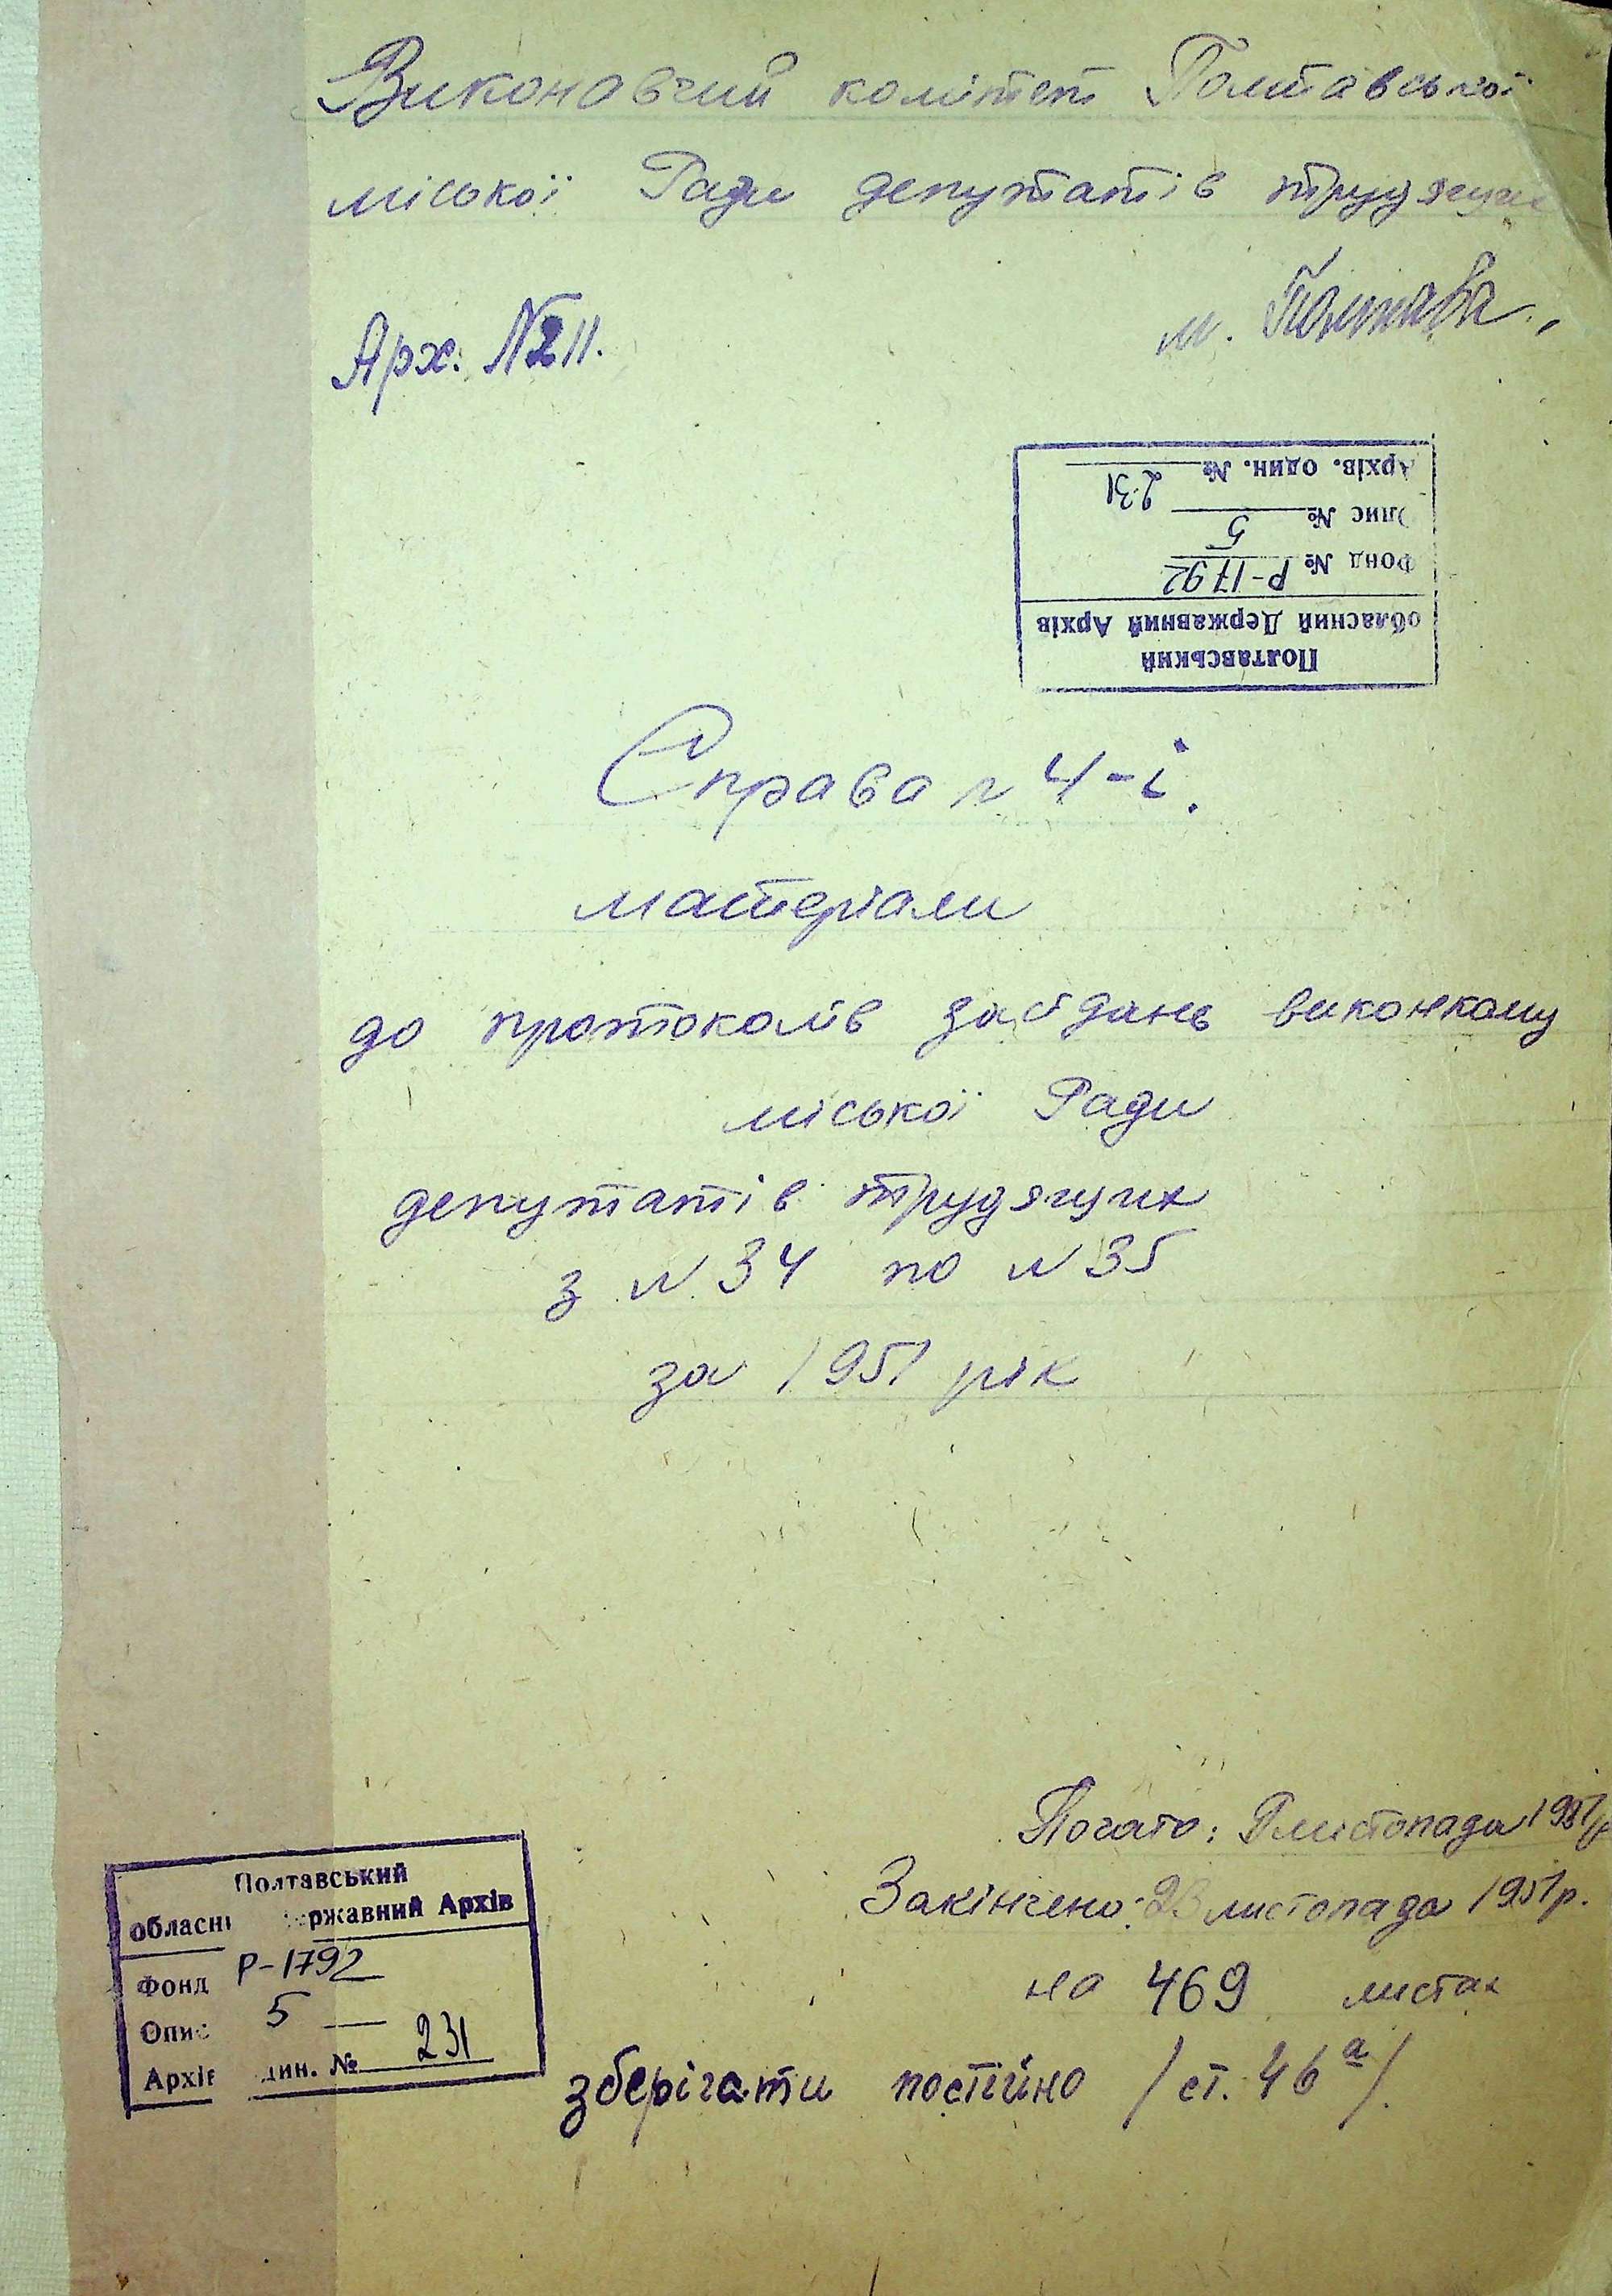 Виконавчий комітет Полтавської
міської Ради депутатів трудящих
м. Полтава.,
Арх. № 211.
Полтавський
обласний Державний Архів
Фонд № Р-1792
Опис № 5
Архів. один. № 231
Справа № 4-і.
матеріали
до протоколів засідань виконкому
міської Ради
депутатів трудящих
з № 34 по № 35
за 1951 рік
Почато: листопада 1951р
Закінчено: 23 листопада 1951р.
на 469 листах
зберігати постійно /ст. 46а/.
Полтавський
обласн ржавний Архів
Фонд Р-1792
Опис 5
Архів дин. № 231